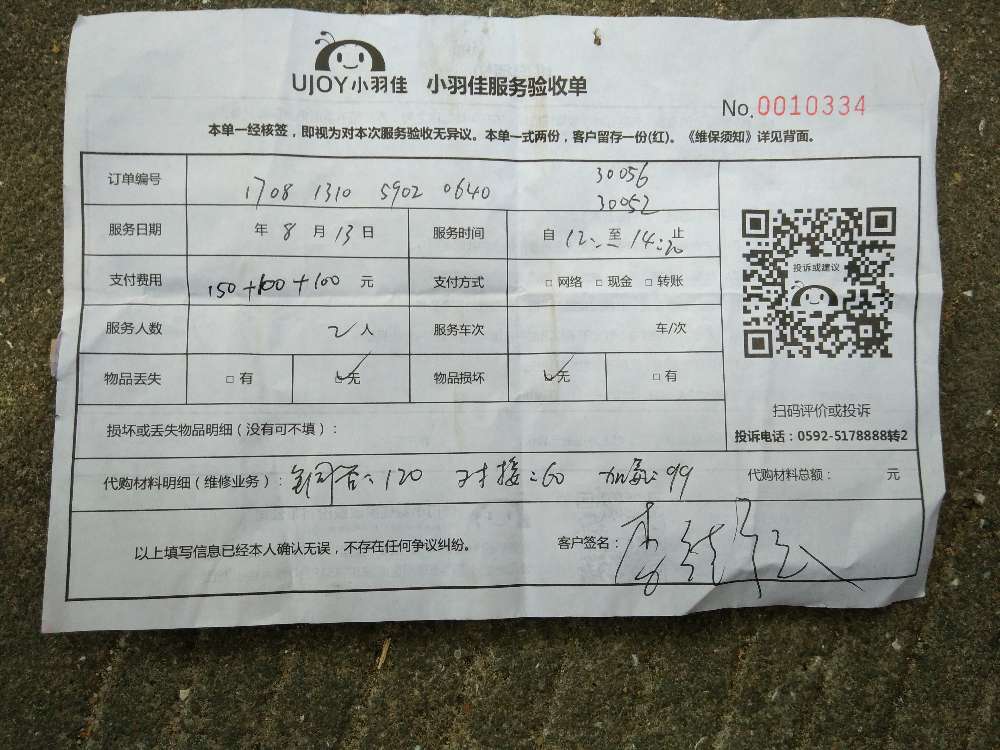 UJOY小羽佳 小羽佳服务验收单
No.0010334
本单一经核签，即视为对本次服务验收无异议。本单一式两份，客户留存一份(红)。《维保须知》详见背面。
订单编号 1708 1310 5902 0640 30056
30052
服务日期 年 8 月 13 日 服务时间 自 12 至 14:20 止
支付费用 150+100+100 元 支付方式 □ 网络 □ 现金 □ 转账
服务人数 2 人 服务车次 车/次
物品丢失 □ 有 □ 无 物品损坏 □ 无 □ 有
投诉或建议
扫码评价或投诉
投诉电话：0592-5178888转2
损坏或丢失物品明细（没有可不填）：
代购材料明细（维修业务）： 铜管：120 对接：60 加氟：99 代购材料总额： 元
以上填写信息已经本人确认无误，不存在任何争议纠纷。 客户签名：